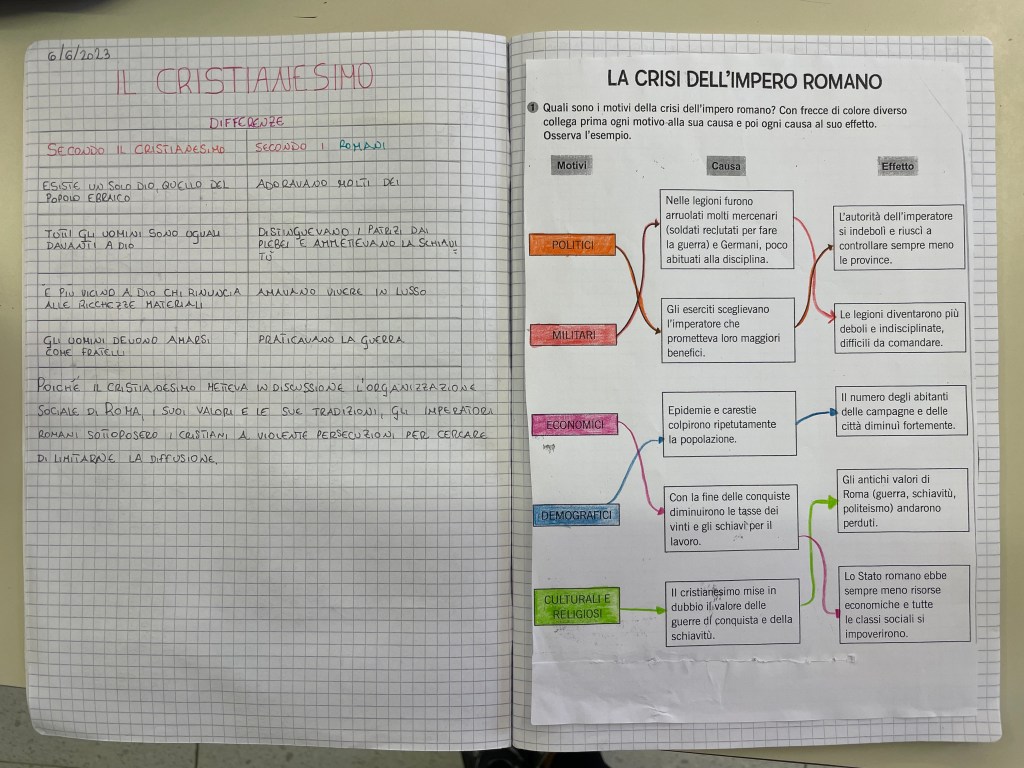 6/6/2023
IL CRISTIANESIMO
DIFFERENZE
SECONDO IL CRISTIANESIMO
SECONDO I ROMANI
ESISTE UN SOLO DIO, QUELLO DEL
POPOLO EBRAICO
ADORAVANO MOLTI DEI
TUTTI GLI UOMINI SONO UGUALI
DAVANTI A DIO
DISTINGUEVANO I PATRIZI DAI
PLEBEI E AMMETTEVANO LA SCHIAVI
TÙ
È PIÙ VICINO A DIO CHI RINUNCIA
ALLE RICCHEZZE MATERIALI
AMAVANO VIVERE IN LUSSO
GLI UOMINI DEVONO AMARSI
COME FRATELLI
PRATICAVANO LA GUERRA
POICHÉ IL CRISTIANESIMO METTEVA IN DISCUSSIONE L'ORGANIZZAZIONE
SOCIALE DI ROMA, I SUOI VALORI E LE SUE TRADIZIONI, GLI IMPERATORI
ROMANI SOTTOPOSERO I CRISTIANI A VIOLENTE PERSECUZIONI PER CERCARE
DI LIMITARNE LA DIFFUSIONE.
LA CRISI DELL'IMPERO ROMANO
1 Quali sono i motivi della crisi dell'impero romano? Con frecce di colore diverso
collega prima ogni motivo alla sua causa e poi ogni causa al suo effetto.
Osserva l'esempio.
Motivi
Causa
Effetto
POLITICI
MILITARI
ECONOMICI
DEMOGRAFICI
CULTURALI E
RELIGIOSI
Nelle legioni furono
arruolati molti mercenari
(soldati reclutati per fare
la guerra) e Germani, poco
abituati alla disciplina.
Gli eserciti sceglievano
l'imperatore che
prometteva loro maggiori
benefici.
Epidemie e carestie
colpirono ripetutamente
la popolazione.
Con la fine delle conquiste
diminuirono le tasse dei
vinti e gli schiavi per il
lavoro.
Il cristianesimo mise in
dubbio il valore delle
guerre di conquista e della
schiavitù.
L'autorità dell'imperatore
si indebolì e riuscì a
controllare sempre meno
le province.
Le legioni diventarono più
deboli e indisciplinate,
difficili da comandare.
Il numero degli abitanti
delle campagne e delle
città diminuì fortemente.
Gli antichi valori di
Roma (guerra, schiavitù,
politeismo) andarono
perduti.
Lo Stato romano ebbe
sempre meno risorse
economiche e tutte
le classi sociali si
impoverirono.